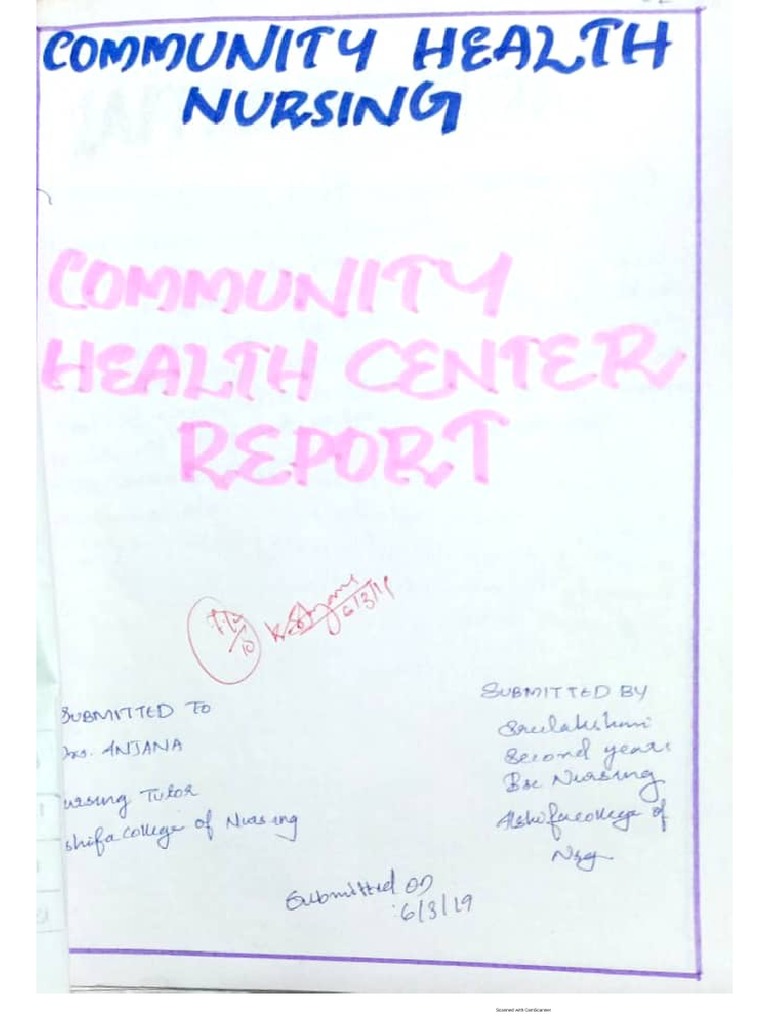 COMMUNITY HEALTH
NURSING
COMMUNITY
HEALTH CENTER
REPORT
6/3/19
SUBMITTED TO
Mrs. ANJANA
ursing Tutor
shifa college of Nursing
SUBMITTED BY
Sreelakshmi
Second year
Bsc Nursing
Alshifa college of
Nsg
Submitted on
:6/3/19
Scanned with CamScanner